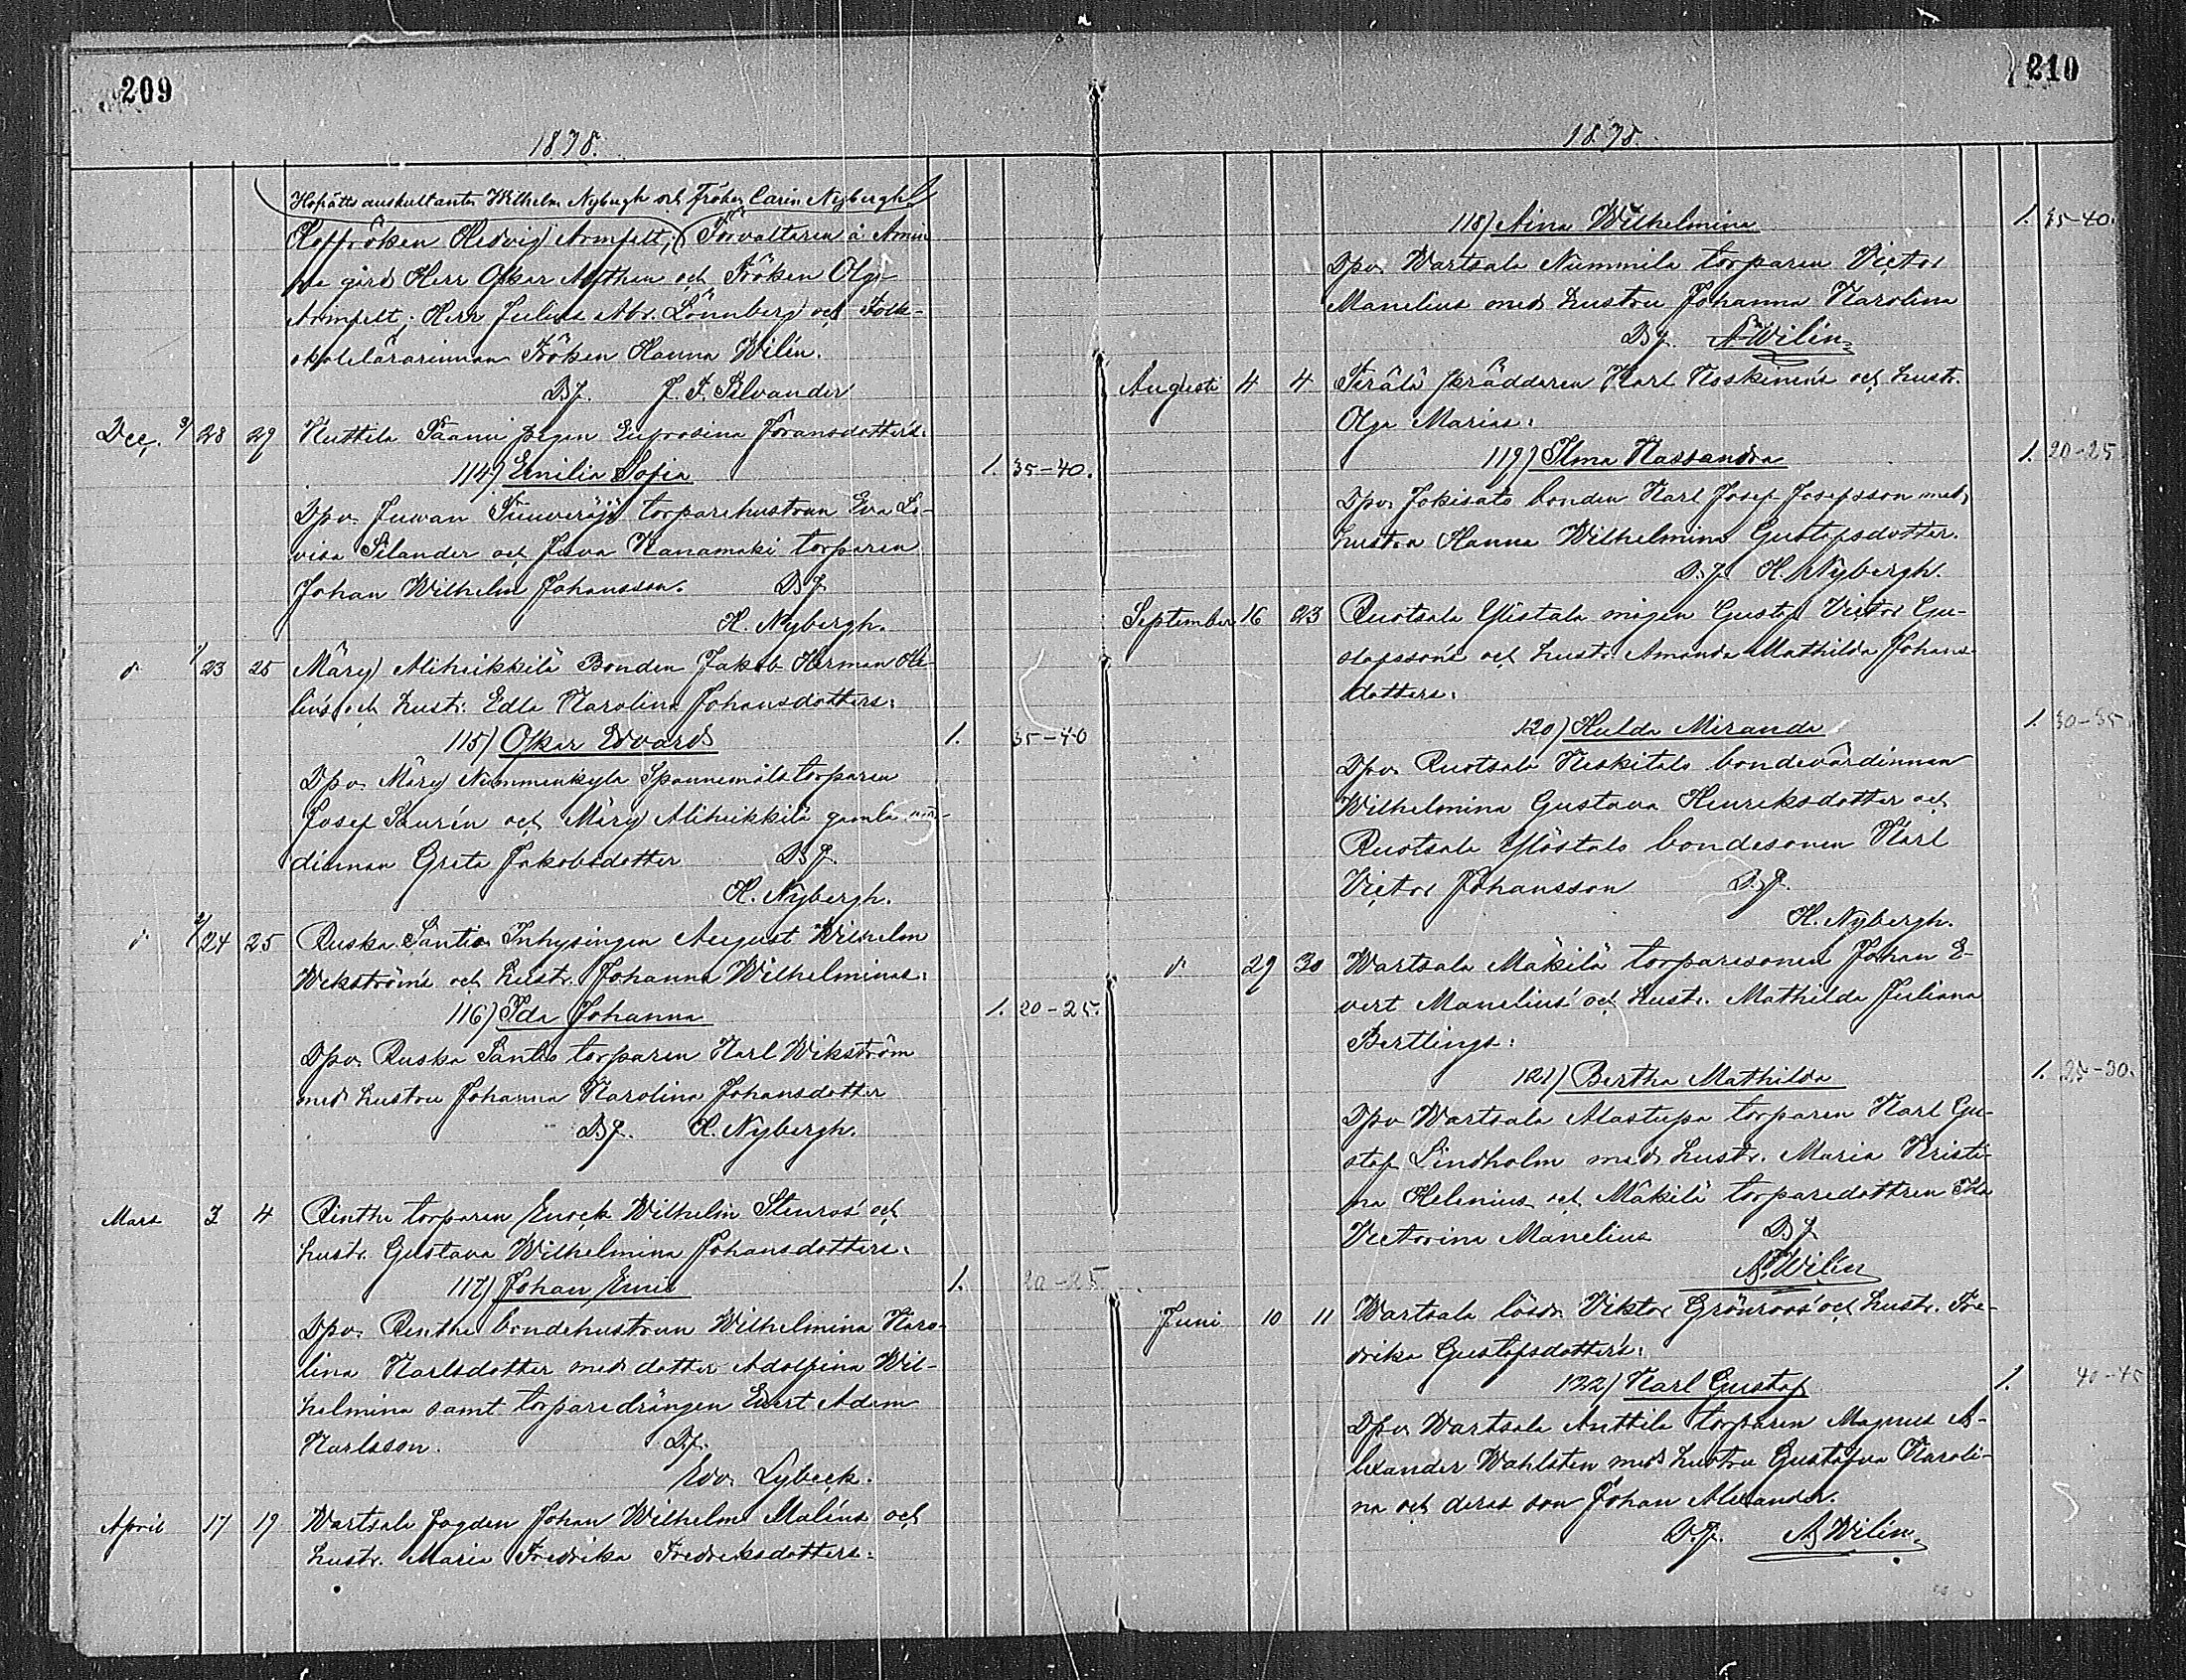 209
1878.
Hofrätts auskultanten Wilhelm Nybergh och Fröken Carin Nybergh
Hoffröken Hedvig Armfelt; Förvaltaren å Åmin-
ne gård Herr Oskar Alfthan och Fröken Olga
Armfelt; Herr Julius Abr. Lönnberg och Folk-
skolelärarinnan Fröken Hanna Wilén.
Df. J. F. Silvander
Dec. 9/ 28 29 Kuttila Saanii pigan Eufrosina Göransdotters:
114) Emilia Sofia 1. 35-40.
Dpv. Juvan Tuuveräjä torparehustrun Eva Lo-
visa Silander och Juva Hanamäki torparen
Johan Wilhelm Johansson. Df
H. Nybergh.
d 1/23 25 Märy Aliheikkilä Bonden Jakob Herman He-
lins och hustr. Edla Karolina Johansdotters:
115) Oskar Edvard 1. 35-40
Dpv. Märy Nummenkylä Spannemålstorparen
Josef Saurén och Märy Aliheikkilä gamla vär-
dinnan Greta Jakobsdotter Df.
H. Nybergh.
d 2/24 25 Ruska Santio Inhysingen August Wilhelm
Wekströms och hustr. Johanna Wilhelminas:
116) Ida Johanna 1. 20-25.
Dpv. Ruska Santio torparen Karl Wikström
med hustru Johanna Karolina Johansdotter
Df. H. Nybergh.
Mars 3 4 Rinthe torparen Enock Wilhelm Stenros' och
hustr. Gustava Wilhelmina Johansdotters:
117) Johan Emil 1. 20-25
Dpv. Rinthe bondehustrun Wilhelmina Karo-
lina Karlsdotter med dotter Adolfina Wil-
helmina samt torparedrängen Evert Adam
Karlsson. Df.
Edv. Lybeck.
April 17 19 Wartsala fogden Johan Wilhelm Malins och
hustr. Maria Fredrika Fredriksdotters:
210
1878.
118) Aina Wilhelmina 1. 35-40.
Dpv. Wartsala Nummila torparen Victor
Manelius med hustru Johanna Karolina
Df. A. Wilén
Augusti 4 4 Terälä skräddaren Karl Koskinens och hustr.
Olga Marias:
119) Ilma Kassandra 1. 20-25
Dpv. Jokisato bonden Karl Josef Josefsson med
hustru Hanna Wilhelmina Gustafsdotter.
Df. H. Nybergh.
September 16 23 Ruotsala Ylistalo mågen Gustaf Victor Gu-
stafssons och hustr. Amanda Mathilda Johans-
dotters:
120) Hulda Miranda 1. 30-35.
Dpv. Ruotsala Keskitalo bondevärdinnan
Wilhelmina Gustava Henriksdotter och
Ruotsala Ylöstalo bondesonen Karl
Victor Johansson Df.
H. Nybergh.
d 29 30 Wartsala Mäkilä torparesonen Johan E-
vert Manelius' och hustr. Mathilda Juliana
Bertlings:
121) Bertha Mathilda 1. 25-30.
Dpv Wartsala Alastupa torparen Karl Gu-
staf Lindholm med hustr. Maria Kristi-
na Helenius och Mäkilä torparedottren Ida
Victorina Manelius Df
A. Wilén
Juni 10 11 Wartsala lösdr. Viktor Grönroos' och hustr. Fre-
drika Gustafsdotters:
122) Karl Gustaf 1. 40-45
Dpv. Wartsala Anttila torparen Magnus A-
lexander Wahlsten med hustru Gustafva Karoli-
na och deras son Johan Alexander.
Df. A Wilén